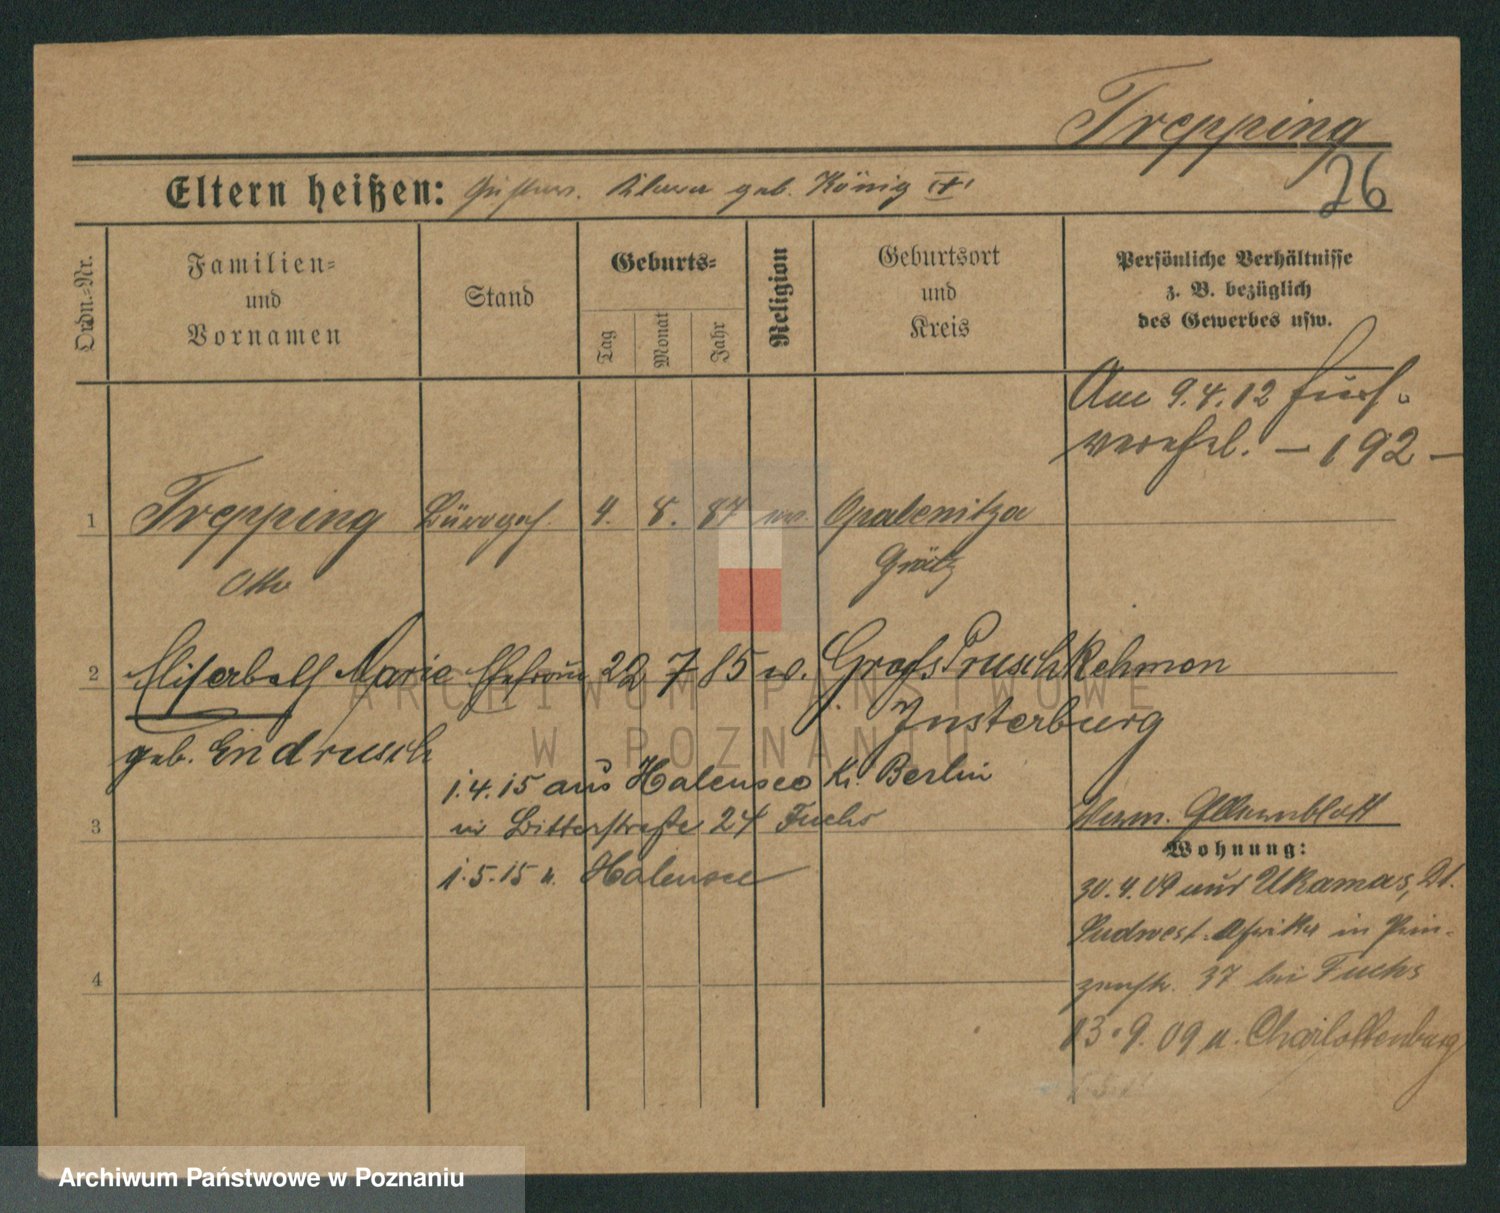 Trepping
26
Eltern heißen: Gustav. Alwa geb. König
Ordn.-Nr.
Familien- und Vornamen
Stand
Geburts-
Tag
Monat
Jahr
Religion
Geburtsort und Kreis
Persönliche Verhältnisse
z. B. bezüglich
des Gewerbes usw.
Am 9.4.12
- 192 -
1 Trepping Bürogeh. 4. 8. 87 Opalenitza
Otto Grätz
2 Elisabeth Marie Ehefrau 22 7 85 w. Groß Pruschkehmen
Insterburg
geb. Endrusch
1.4.15 aus Halensee Kr. Berlin
3 in Ritterstraße 24 Fuchs
Verm.
Wohnung:
1.5.15 n. Halensee
30.4.09 aus Ukamas, Dt.
Südwest-Afrika in Prin-
4 zenstr. 37 bei Fuchs
13.9.09 n. Charlottenburg
ARCHIWUM PAŃSTWOWE
W POZNANIU
Archiwum Państwowe w Poznaniu